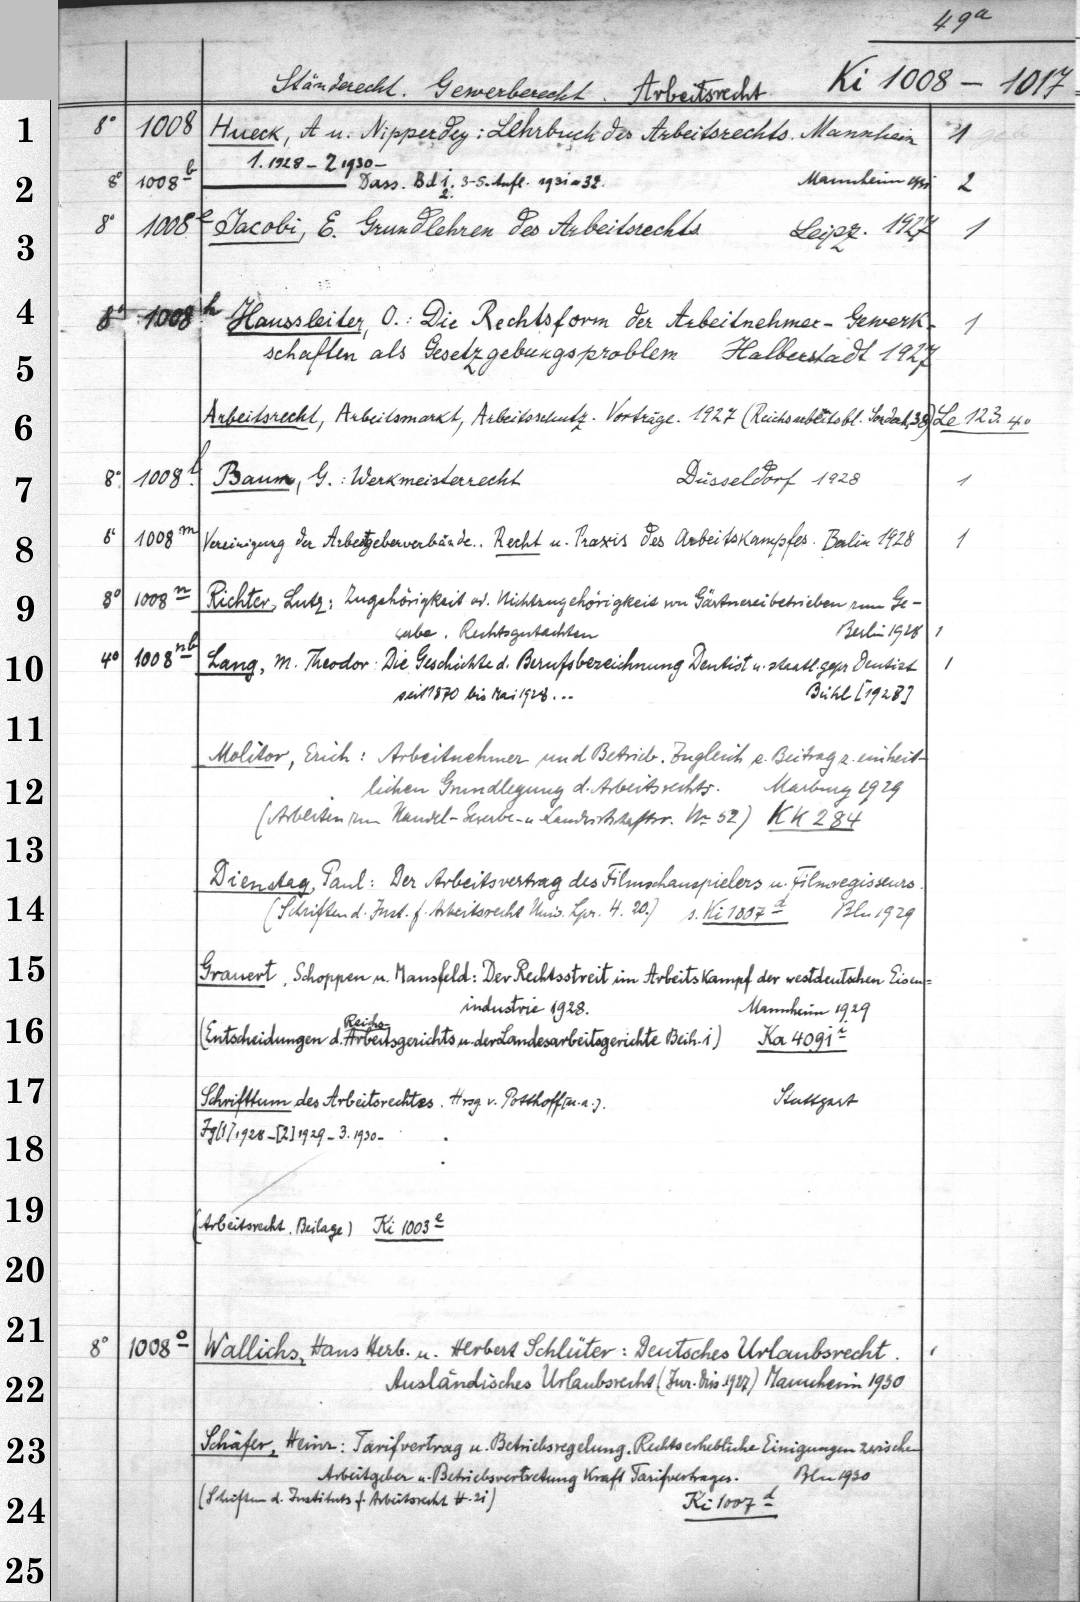 49a
Ständerecht. Gewerberecht. Arbeitsrecht Ki 1008 - 1017
1 8° 1008 Hueck, A u. Nipperdey: Lehrbuch des Arbeitsrechts. Mannheim 1
1. 1928 - 2 1930 -
2 8° 1008 b ——— Dass. Bd 1. 2. 3-5. Aufl. 1931-32. Mannheim 1931 2
3 8° 1008 e Jacobi, E. Grundlehren des Arbeitsrechts Leipz. 1927 1
4 8° 1008 h Haussleiter, O.: Die Rechtsform der Arbeitnehmer-Gewerk- 1
5 schaften als Gesetzgebungsproblem Halberstadt 1927
6 Arbeitsrecht, Arbeitsmarkt, Arbeitsschutz. Vorträge. 1927 (Reichsarbeitsbl. Sonderh, 38) Le 123. 4°
7 8° 1008 l Baum, G.: Werkmeisterrecht Düsseldorf 1928 1
8 8° 1008 m Vereinigung der Arbeitgeberverbände.. Recht u. Praxis des Arbeitskampfes. Berlin 1928 1
9 8° 1008 n Richter, Lutz: Zugehörigkeit od. Nichtzugehörigkeit von Gärtnereibetrieben zum Ge-
werbe. Rechtsgutachten Berlin 1928 1
10 4° 1008 nb Lang, M. Theodor: Die Geschichte d. Berufsbezeichnung Dentist u. staatl. gepr Dentist 1
seit 1870 bis Mai 1928... Bühl [1928]
11
Molitor, Erich: Arbeitnehmer und Betrieb. Zugleich e. Beitrag z. einheit-
12 lichen Grundlegung d. Arbeitsrechts. Marburg 1929
(Arbeiten zum Handel- Gewerbe- u Landwirtschaftsr. Nr 52) KK 284
13
Dienstag, Paul: Der Arbeitsvertrag des Filmschauspielers u. Filmregisseurs.
14 (Schriften d. Inst. f. Arbeitsrecht Univ. Lpz. H. 20.) s. Ki 1007 d Bln 1929
15 Grauert, Schoppen u. Mansfeld: Der Rechtsstreit im Arbeitskampf der westdeutschen Eisen=
industrie 1928. Mannheim 1929
16 (Entscheidungen d. Reichs Arbeitsgerichts u. der Landesarbeitsgerichte Beih. 1) Ka 4091
17 Schrifttum des Arbeitsrechtes. Hrsg v. Potthoff [u. a.]. Stuttgart
Jg [1] 1928 - [2] 1929 - 3. 1930 -
18
19 (Arbeitsrecht. Beilage) Ki 1003 e
20
21 8° 1008 o Wallichs, Hans Herb. u. Herbert Schlüter: Deutsches Urlaubsrecht. 1
22 Ausländisches Urlaubsrecht (Jur. Diss 1927) Mannheim 1930
23 Schäfer, Heinz: Tarifvertrag u. Betriebsregelung. Rechtserhebliche Einigungen zwischen
Arbeitgeber u. Betriebsvertretung kraft Tarifvertrages. Bln 1930
24 (Schriften d. Instituts f. Arbeitsrecht H. 21) Ki 1007 d
25